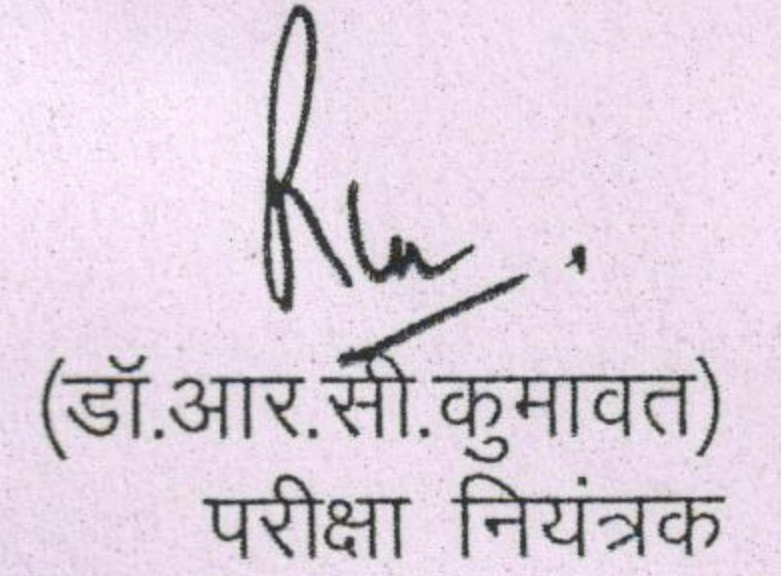 (डॉ.आर.सी.कुमावत)
परीक्षा नियंत्रक